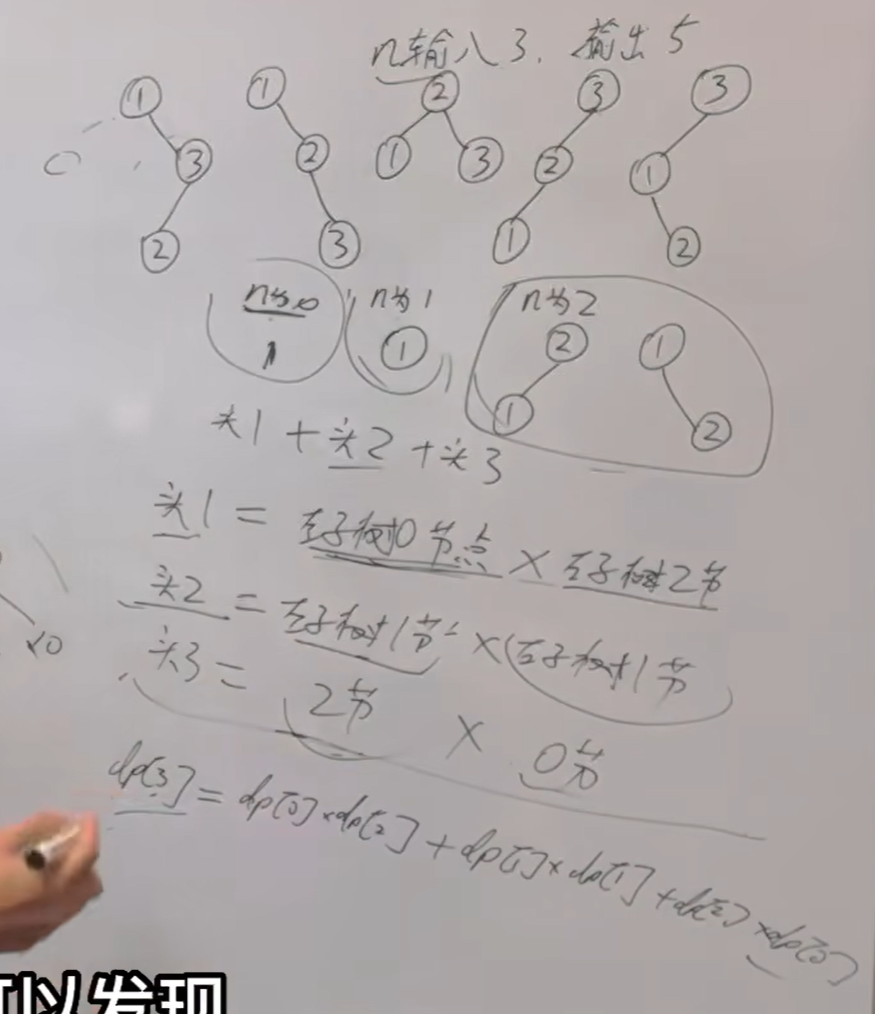 n输入3. 输出5
1 1 2 3 3
3 2 1 3 2 1
2 3 1 2
n为0 n为1 n为2
1 1 2 1
1 2
头1+头2+头3
头1=左子树0节点×右子树2节
头2=左子树1节×(右子树1节
头3=2节×0节
dp[3]=dp[0]×dp[2]+dp[1]×dp[1]+dp[2]×dp[0]
10
可以发现